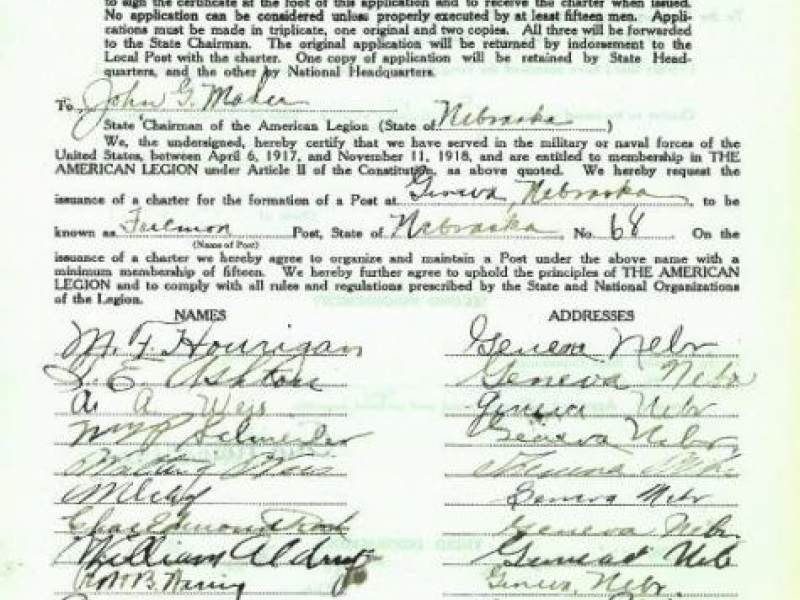 to sign the certificate at the foot of this application and to receive the charter when issued.
No application can be considered unless properly executed by at least fifteen men. Appli-
cations must be made in triplicate, one original and two copies. All three will be forwarded
to the State Chairman. The original application will be returned by indorsement to the
Local Post with the charter. One copy of application will be retained by State Head-
quarters, and the other by National Headquarters.
To John G. Maher
State Chairman of the American Legion (State of Nebraska)
We, the undersigned, hereby certify that we have served in the military or naval forces of the
United States, between April 6, 1917, and November 11, 1918, and are entitled to membership in THE
AMERICAN LEGION under Article II of the Constitution, as above quoted. We hereby request the
issuance of a charter for the formation of a Post at Geneva, Nebraska, to be
known as Post, State of Nebraska, No. 68 On the
(Name of Post)
issuance of a charter we hereby agree to organize and maintain a Post under the above name with a
minimum membership of fifteen. We hereby further agree to uphold the principles of THE AMERICAN
LEGION and to comply with all rules and regulations prescribed by the State and National Organizations
of the Legion.
NAMES ADDRESSES
M. F. Hourigan Geneva Nebr
E. Ashton Geneva Nebr
A. A. Weis Geneva Nebr
Geneva Nebr
Geneva Nebr
Geneva Nebr
Chas Edmond Geneva Nebr.
William Aldrup Geneva Neb
B. Waring Geneva, Nebr.